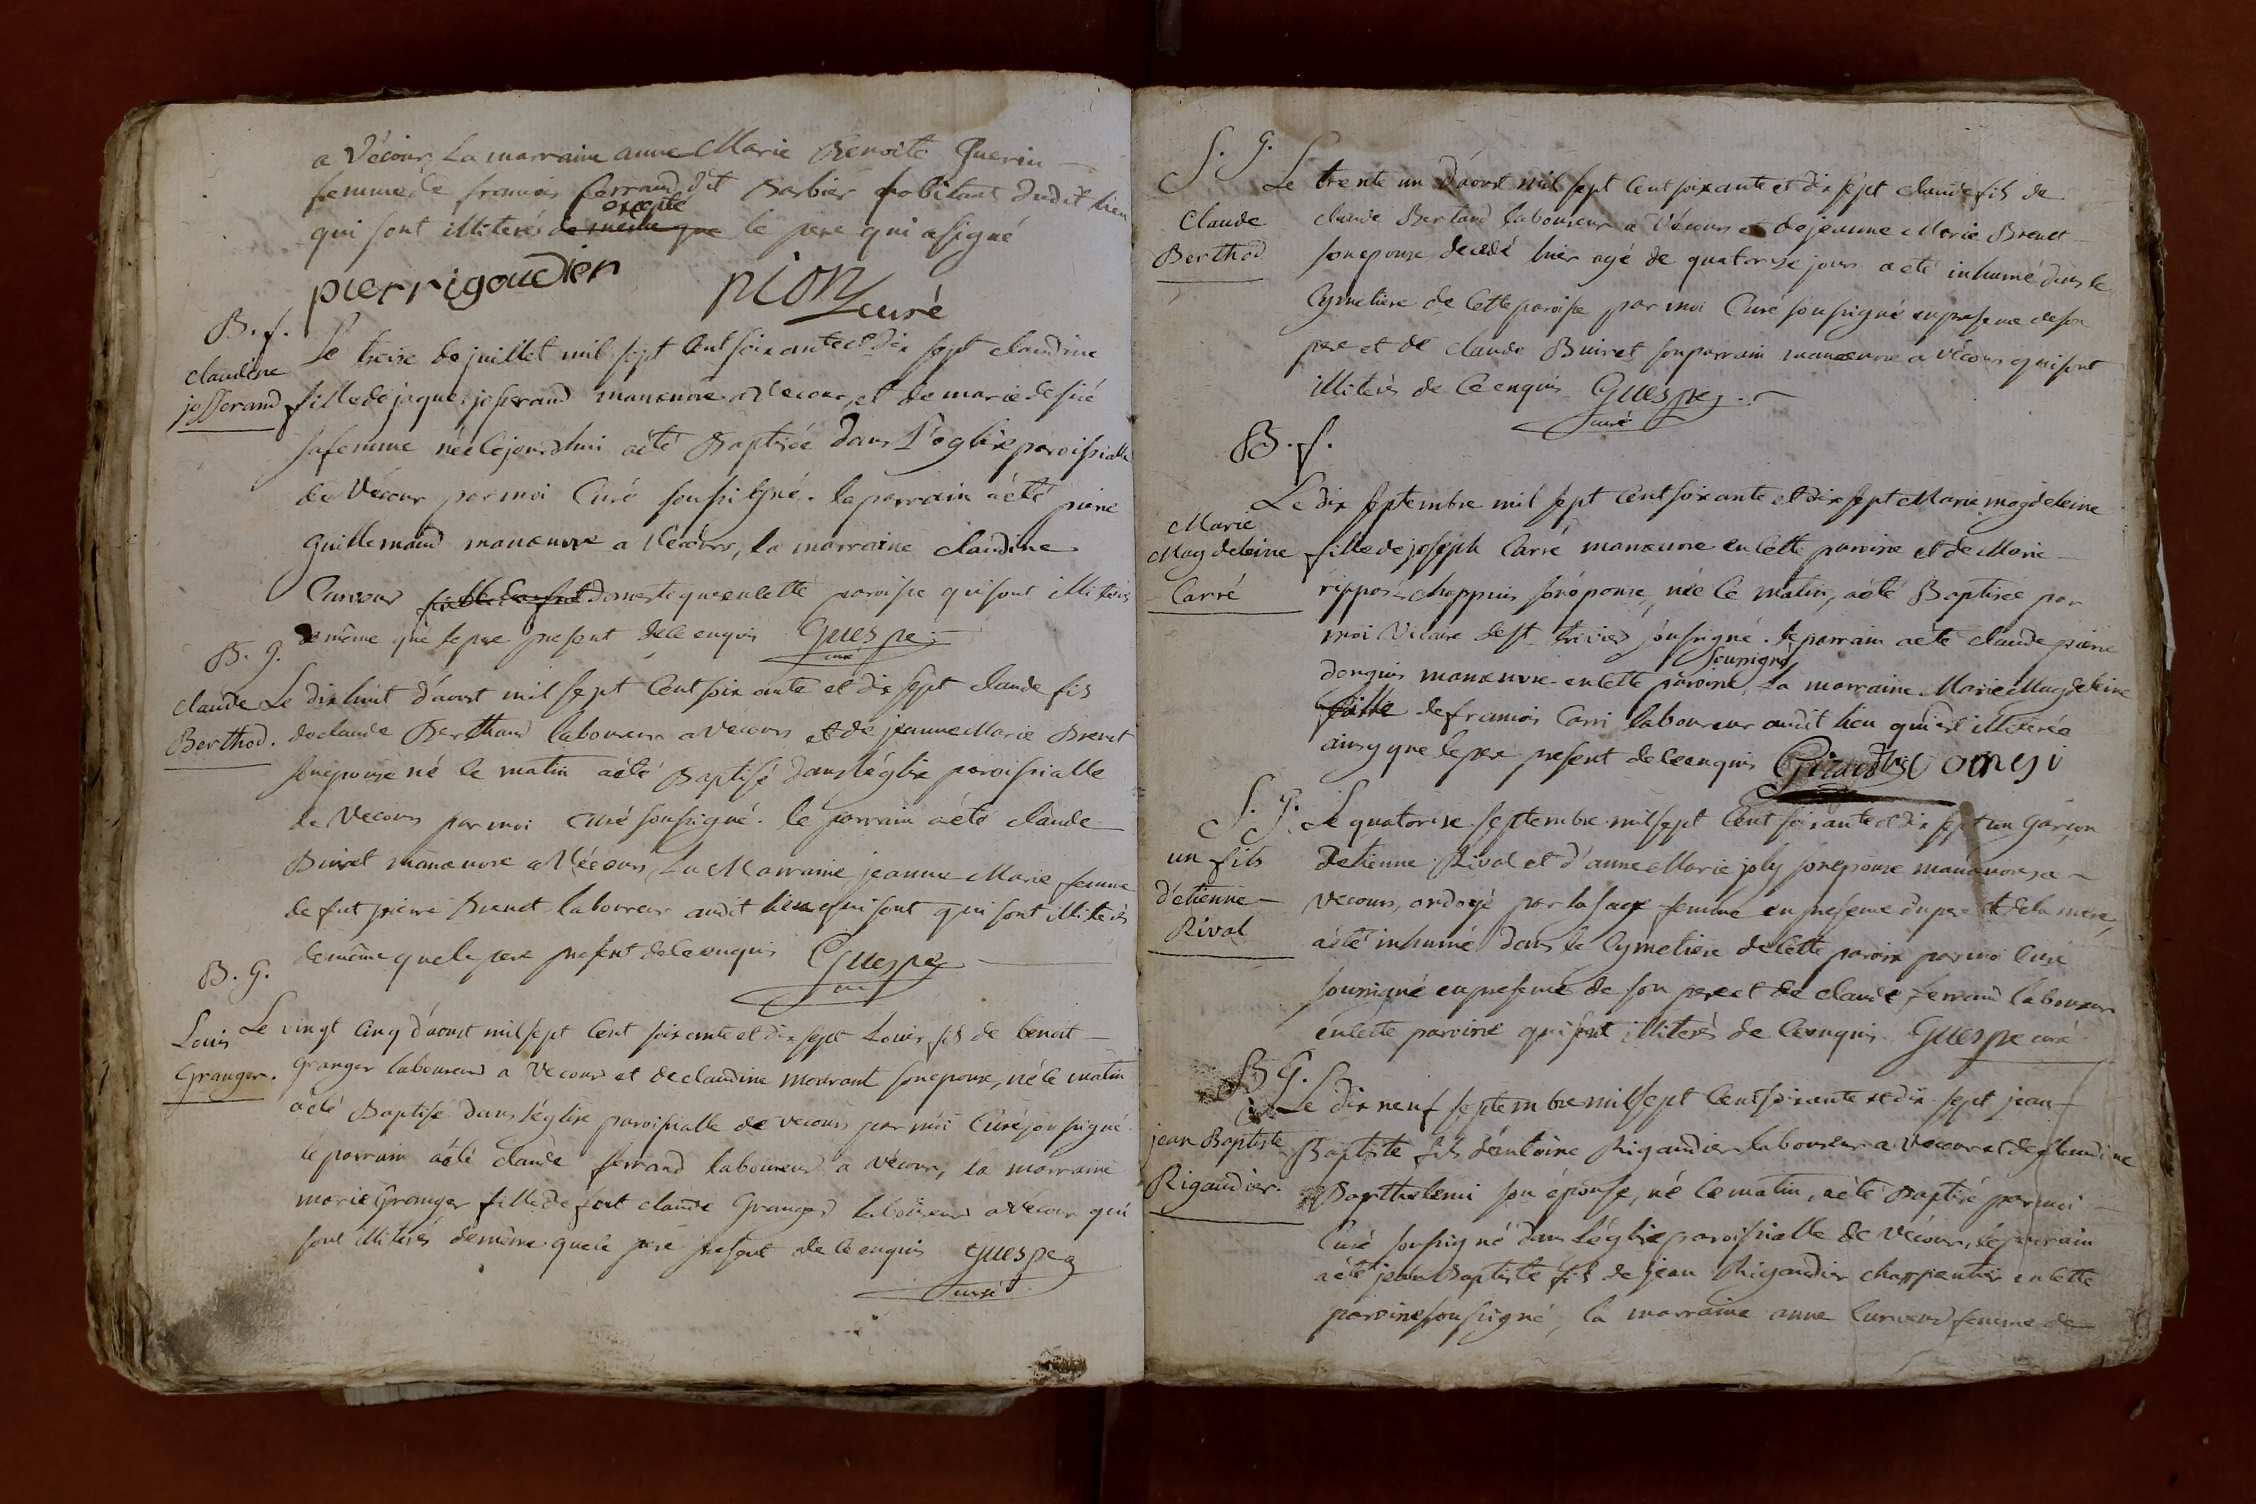 a Vécour, La marraine anne Marie Benoite Guerin
femme de francois ferrand dit Barbier habitant dudit lieu
qui sont illiterés de meme que excepté le pere qui a signé
pierrigaudier pion curé
B. f.
claudine
josserand
Le treise de juillet mil sept Cent soixante et dix sept claudine
fille de jaque josserand manœuvre a Vecour, et de marie
sa femme née cejourdhui a été Baptisée dans L'eglise paroissialle
de Vécour par moi Curé soussigné. le parrain a été pierre
Guillemaud manœuvre a Vecour, la marraine claudine
domestique en cette paroisse qui sont illiterés
de même que le pere present de ce enquis Guespe
curé
B. g.
claude
Berthod.
Le dix huit d'aoust mil sept Cent soixante et dix sept claude fils
de claude Berthaud laboureur a Vecours et de jeanne Marie Brevet
son epouse né le matin a été Baptisé dans l'église paroissialle
de Vecours par moi curé soussigné. le parrain a été claude
Buiret manœuvre a Vécours, La Marraine jeanne Marie femme
de fut pierre Brevet laboureur audit lieu qui sont qui sont illiterés
de même que le pere present de ce enquis Guespe
curé
B. G.
Louis
Granger.
Le vingt cinq d'aoust mil sept Cent soixante et dix sept Louis fils de benoit
Granger laboureur a Vecour et de claudine morrant son epouse, né le matin
a été Baptisé dans l'église paroissialle de vecours par moi Curé soussigné.
le parrain a été claude ferrand laboureur a vécour, la marraine
marie Granger fille de fut claude Granger laboureur a Vecour qui
sont illiterés de même que le pere present de ce enquis Guespe
curé
S. G.
Claude
Berthod
Le trente un d'aoust mil sept Cent soixante et dix sept claude fils de
claude Bertaud laboureur a Vécours et de jeanne Marie Brevet
son epouse decedé hier agé de quatorze jours a été inhumé dans le
Cymetiere de Cette paroisse par moi Curé soussigné en presence de son
pere et de claude Buiret son parrain manœuvre a vécour qui sont
illiterés de ce enquis Guespe
curé
B. f.
Marie
Magdeleine
Carré
Le dix septembre mil sept Cent soixante et dix sept Marie magdeleine
fille de joseph Carré manœuvre en Cette paroisse et de Marie
chappuis son épouse, née le matin, a été Baptisée par
moi Vicaire de st trivier soussigné. le parrain a été claude pierre
donguis manœuvre en cette paroisse soussigné, La marraine Marie Magdeleine
fille de francois Carri laboureur audit lieu qui est illiterée
ainsy que le pere present de ce enquis Giraud
S. G.
un fils
d'étienne
Rival
Le quatorze septembre mil sept Cent soixante et dix sept un Garçon
d'etienne Rival et d'anne Marie joly son epouse manœuvres a
vecours, ondoyé par la sage femme en presence du pere et de la mere,
a été inhumé dans le Cymetiere de Cette paroisse par moi Curé
soussigné en presence de son pere et de claude ferrand laboureur
en cette paroisse qui sont illiterés de ce enquis Guespe curé.
B G.
jean Baptiste
Rigaudier.
Le dix neuf septembre mil sept Cent soixante et dix sept jean
Baptiste fils d'antoine Rigaudier laboureur a Vecour et de claudine
Barthelemi son épouse, né le matin, a été Baptisé par moi
Curé soussigné dans l'église paroissialle de Vécour, le parrain
a été jean Baptiste fils de jean Rigaudier charpentier en Cette
paroisse soussigné, la marraine anne femme de